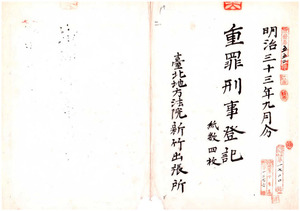 明治三十三年九月分
重罪刑事登記
紙数四枚
臺北地方法院新竹出張所